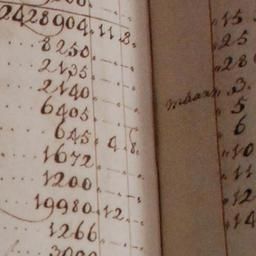 2428904.11.8.
8250.
2135.
2140.
6405.
645.4.8.
1672.
1200.
19980.12.
1266.
15
25
28
3.
5
6
10
11
12
14